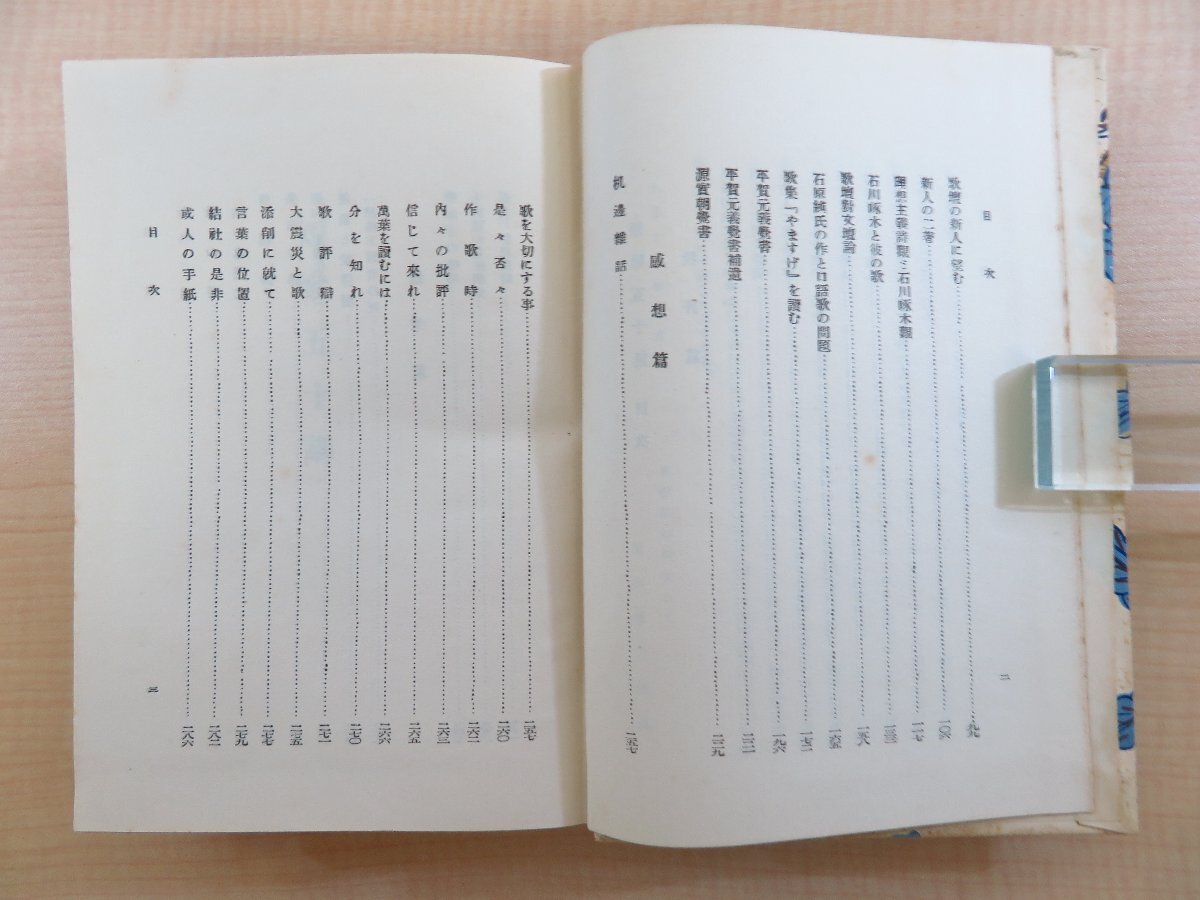 目次
二
歌壇の新人に望む……九九
新人の二著……一〇六
理想主義詩觀と石川啄木觀……一三三
石川啄木と彼の歌……一五八
歌壇對文壇論……
石原純氏の作と口語歌の問題……一六五
歌集「やますげ」を讀む……一七二
平賀元義覺書……一九六
平賀元義覺書補遺……
源實朝覺書……二二九
感想篇
机邊雜話……二五七
歌を大切にする事……二五七
是々否々……二六〇
作歌時……二六二
內々の批評……二六三
信じて來れ……二六五
萬葉を讀むには……二六六
分を知れ……二七〇
歌評辯……二七一
大震災と歌……二七五
添削に就て……二七七
言葉の位置……二七九
結社の是非……二八二
或人の手紙……二八六
目次
三